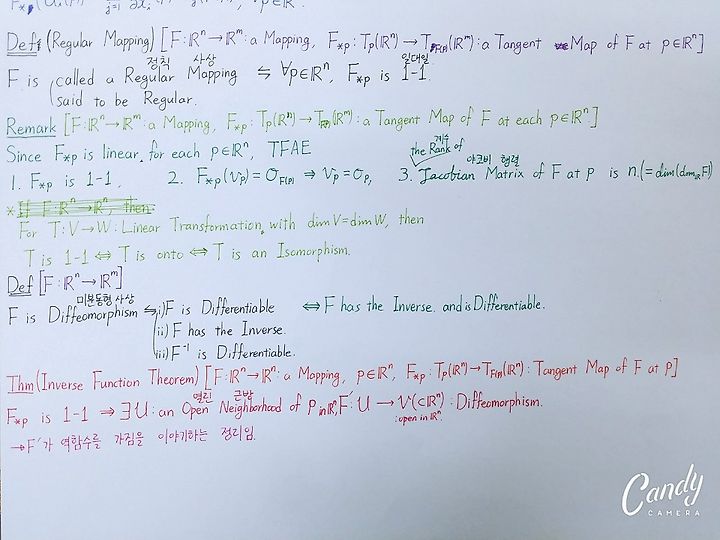 Def) (Regular Mapping) [F:ℝⁿ→ℝᵐ: a Mapping, F*p: Tp(ℝⁿ)→TF(p)(ℝᵐ): a Tangent Map of F at p∈ℝⁿ]
정칙 사상 일대일
F is called a Regular Mapping ⇆ ∀p∈ℝⁿ, F*p is 1-1.
said to be Regular.
Remark [F:ℝⁿ→ℝᵐ: a Mapping, F*p: Tp(ℝⁿ)→TF(p)(ℝᵐ): a Tangent Map of F at each p∈ℝⁿ]
계수
Since F*p is linear, for each p∈ℝⁿ, TFAE the Rank of
야코비 행렬
1. F*p is 1-1. 2. F*p(vp)=0F(p) ⇒ vp=0p, 3. Jacobian Matrix of F at p is n.(=dim(domℝF))
* If F:ℝⁿ→ℝⁿ, then
For T:V→W: Linear Transformation, with dimV=dimW, then
T is 1-1 ⇔ T is onto ⇔ T is an Isomorphism.
Def [F:ℝⁿ→ℝᵐ]
미분동형사상
F is Diffeomorphism ⇆ i) F is Differentiable ⇔ F has the Inverse. and is Differentiable.
ii) F has the Inverse.
iii) F⁻¹ is Differentiable.
Thm (Inverse Function Theorem) [F:ℝⁿ→ℝⁿ: a Mapping, p∈ℝⁿ, F*p: Tp(ℝⁿ)→TF(p)(ℝⁿ): Tangent Map of F at p]
열린 근방
F*p is 1-1 ⇒ ∃U: an Open Neighborhood of p in ℝⁿ, F′: U → V(⊂ℝⁿ): Diffeomorphism.
: open in ℝⁿ.
→F′가 역함수를 가짐을 이야기하는 정리임.
Candy
CAMERA